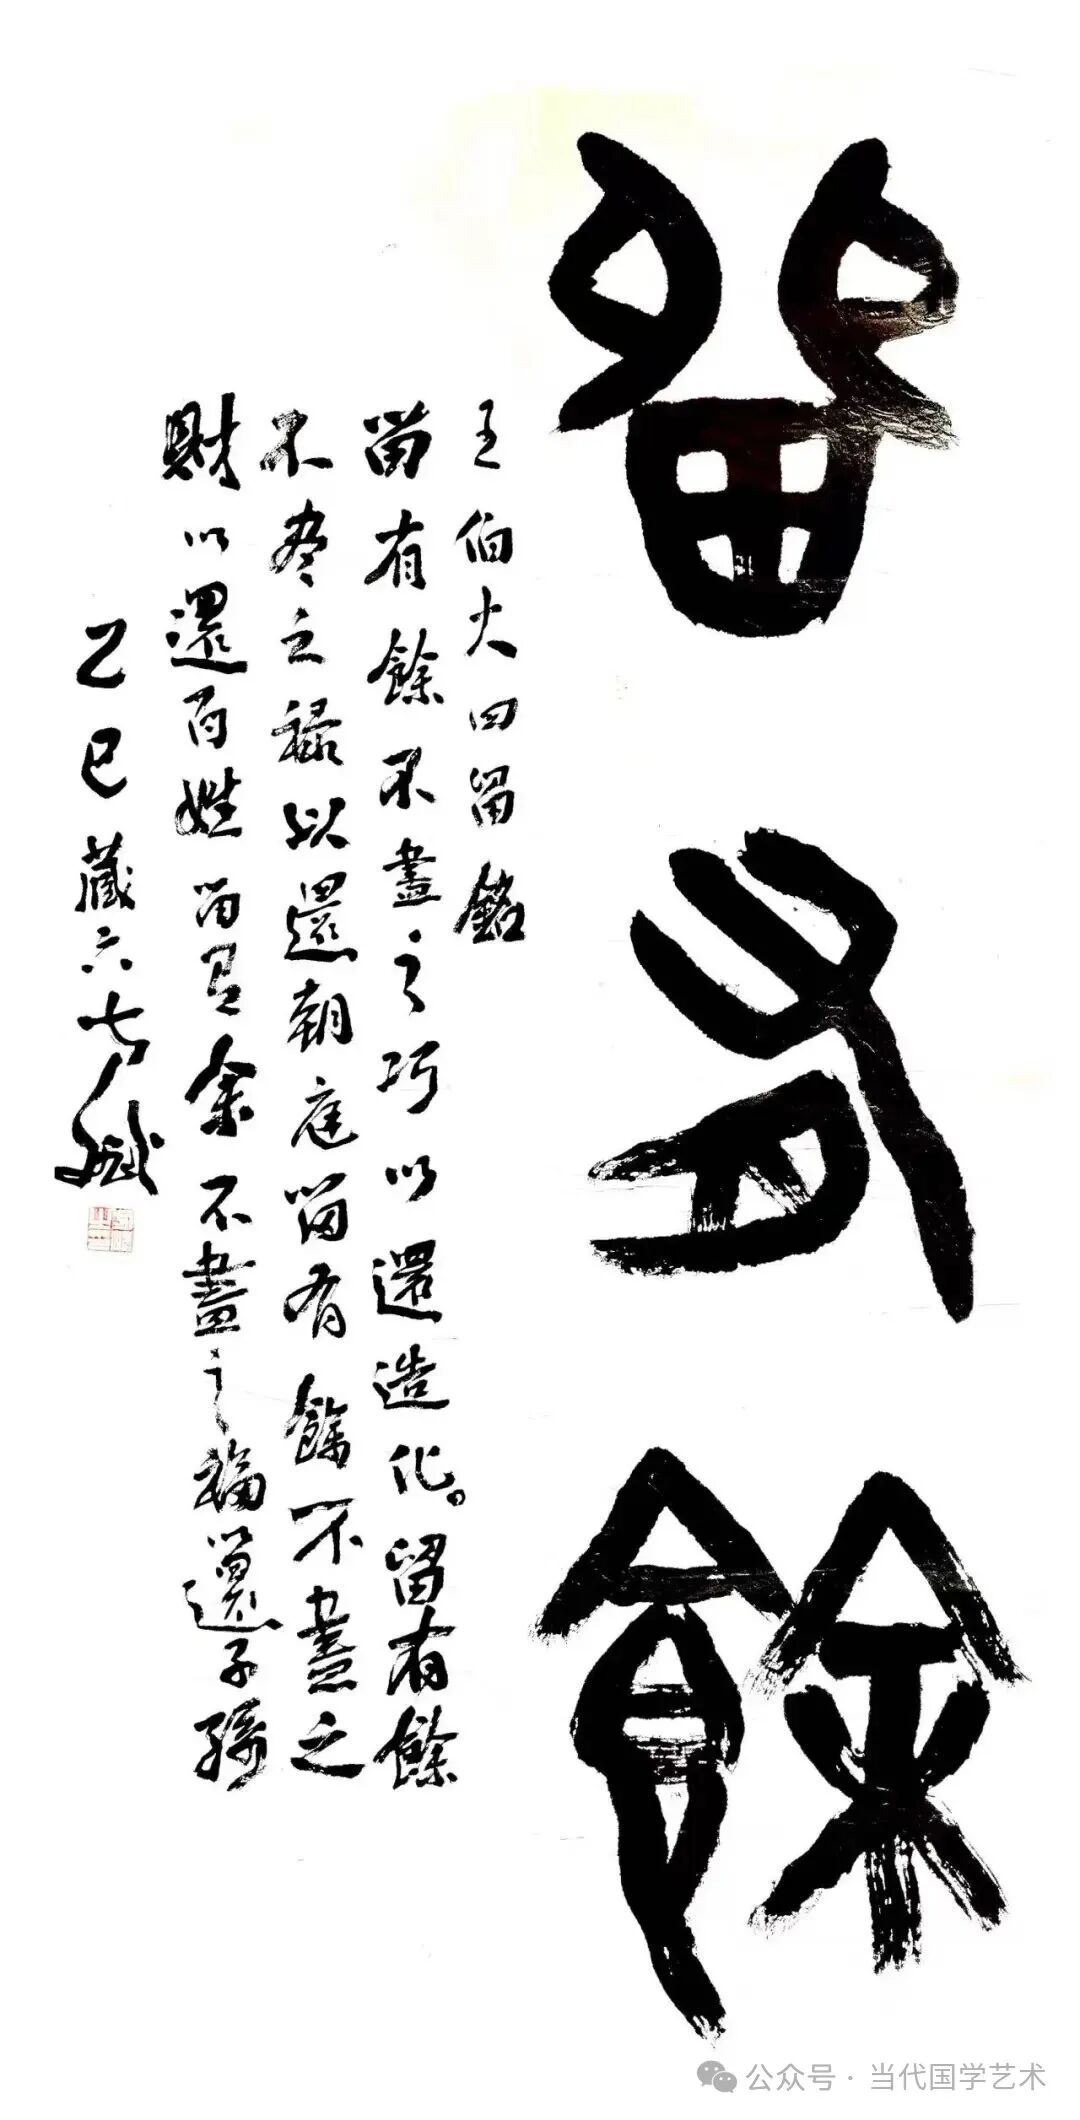 留有餘
王伯大四留銘
留有餘不盡之巧以還造化。留有餘
不盡之祿以還朝庭留有餘不盡之
財以還百姓留有余不盡之福以還子孫
乙巳藏六
公众号·当代国学艺术